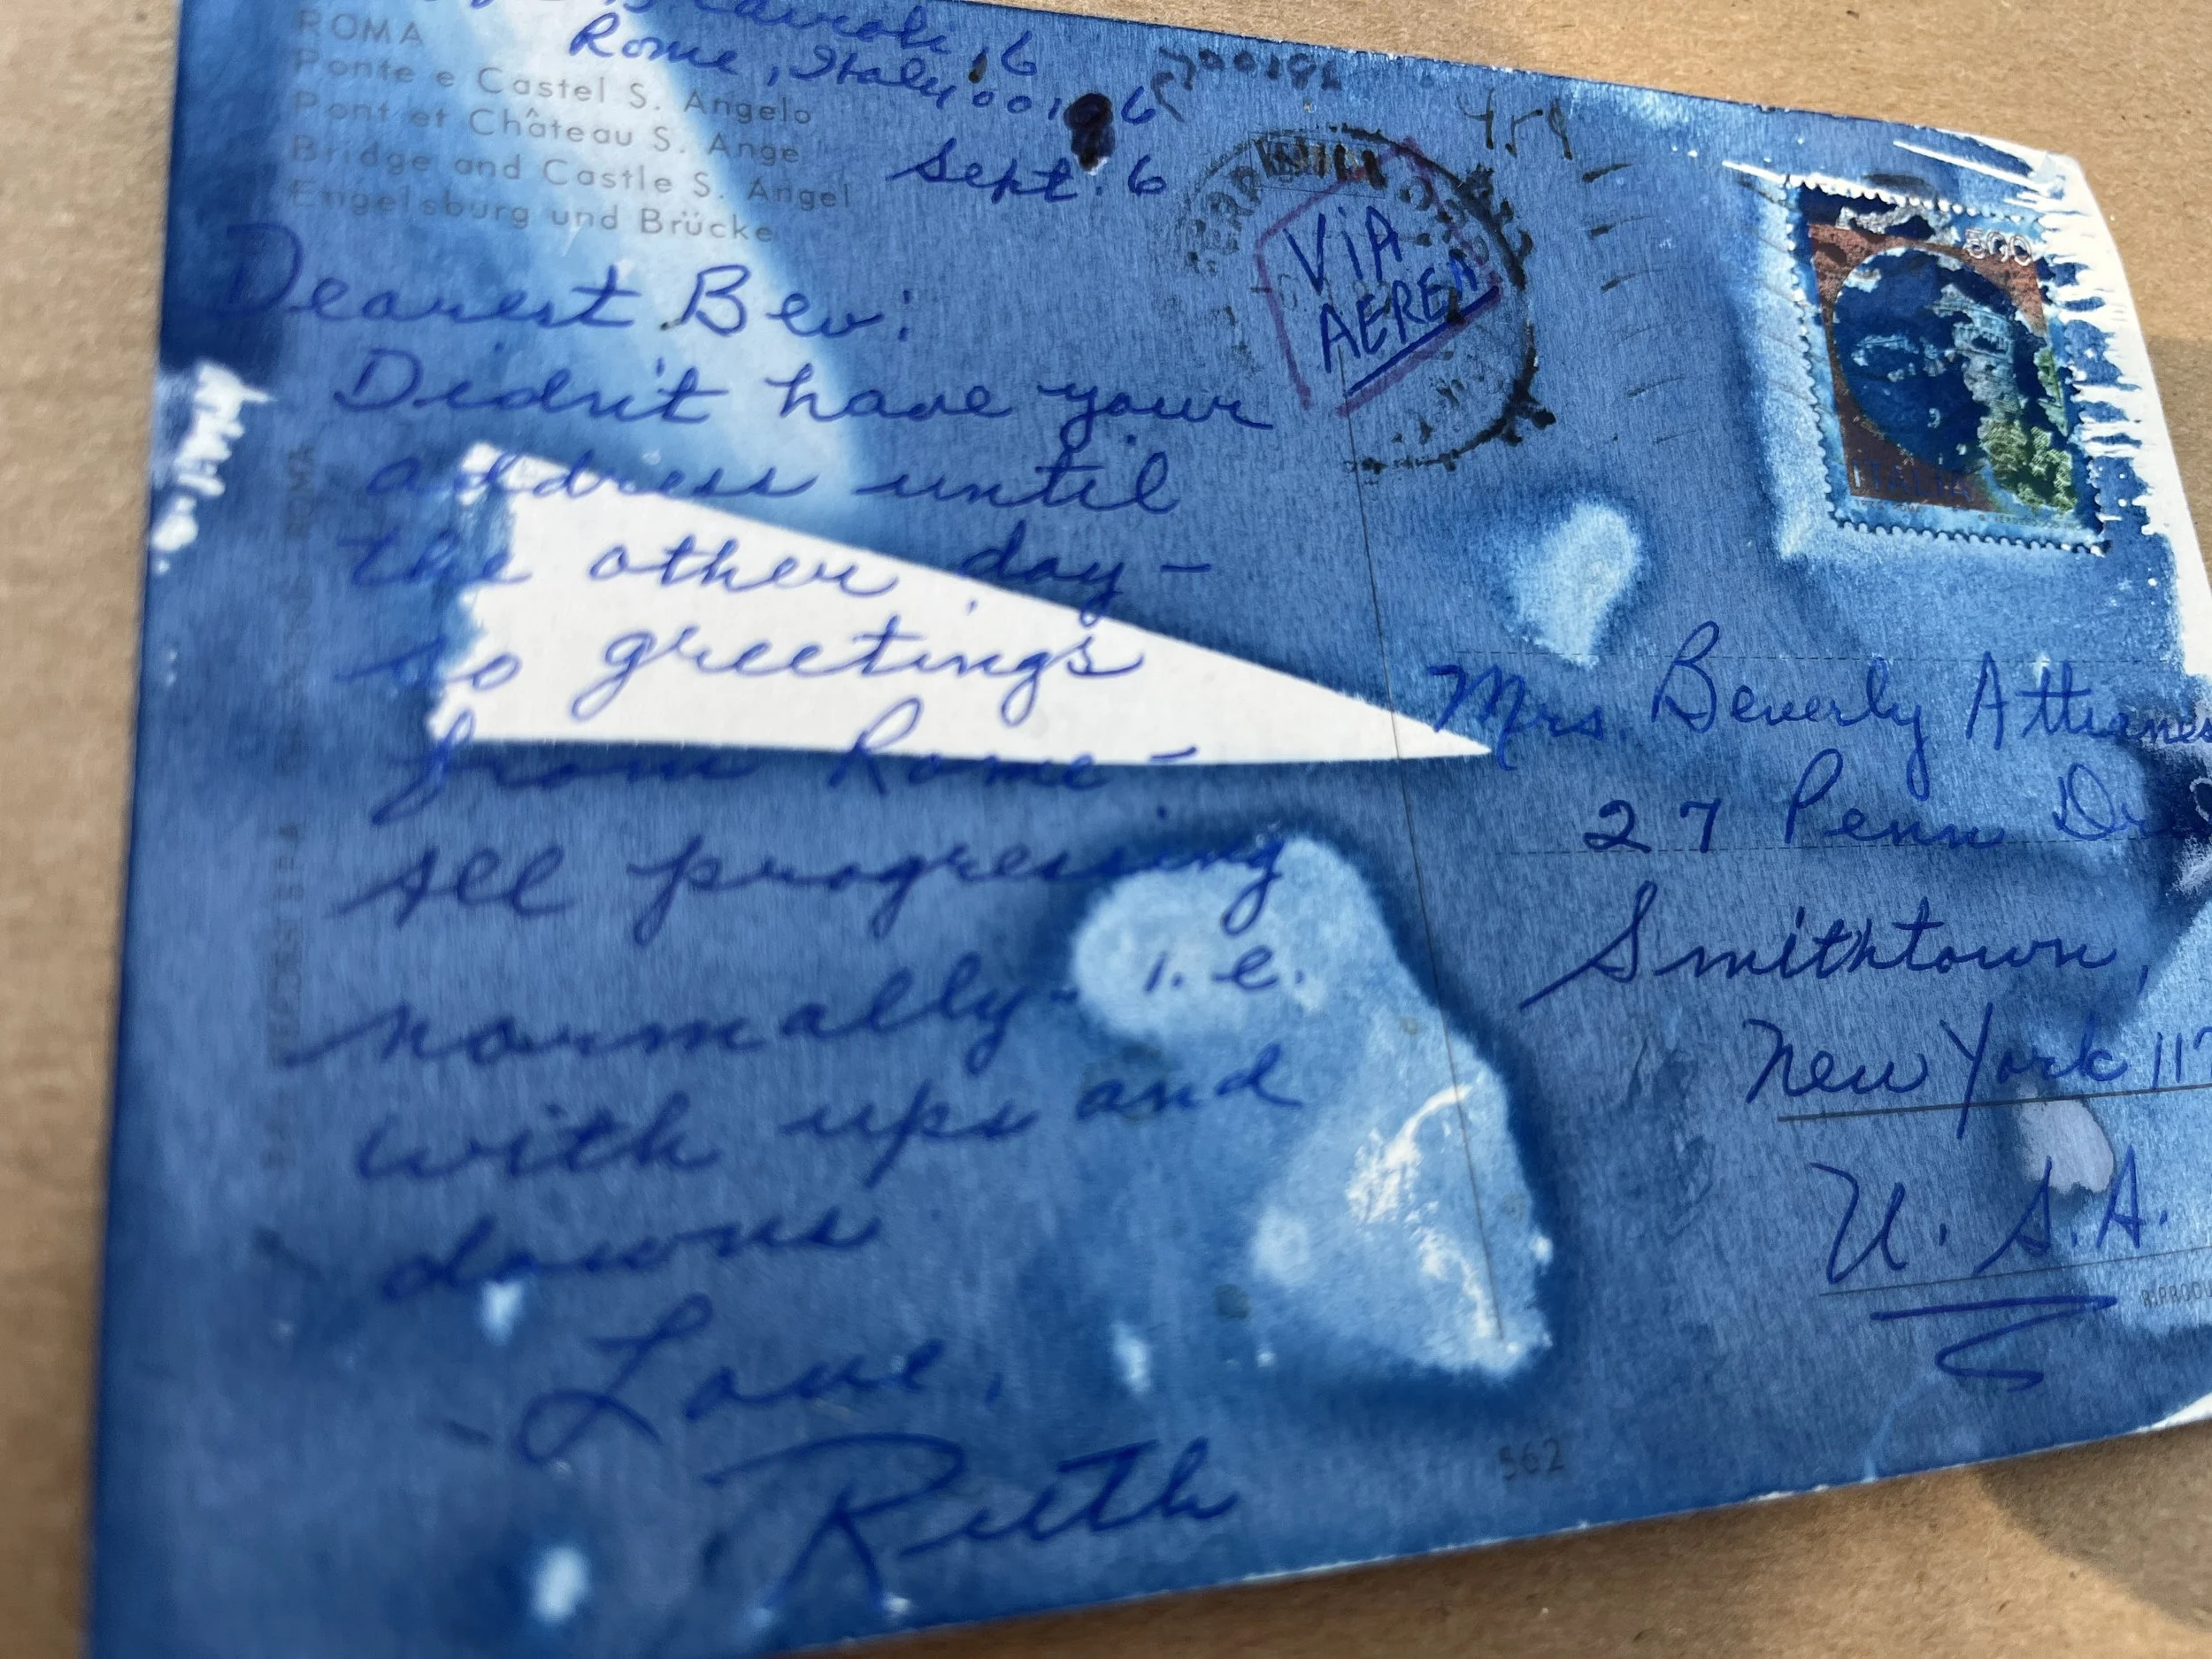 Rome, Italy 00196
Sept. 6
ROMA
Ponte e Castel S. Angelo
Pont et Château S. Ange
Bridge and Castle S. Angel
Engelsburg und Brücke
Dearest Bev:
Didn't have your
address until
the other day-
so greetings
from Rome-
All progressing
normally- i.e.
with ups and
downs
Love,
Ruth
562
VIA
AEREA
500
ITALIA
Mrs. Beverly
27 Penn Dr
Smithtown,
New York 117
U.S.A.